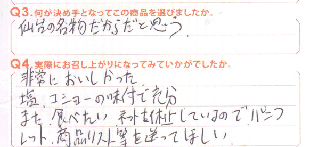 Q3. 何が決め手となってこの商品を選びましたか。
仙台の名物だからだと思う
Q4. 実際にお召し上がりになってみていかがでしたか。
非常においしかった
塩、コショーの味付で充分
また、食べたい ネットを休止しているのでパンフ
レット、商品リスト等を送ってほしい